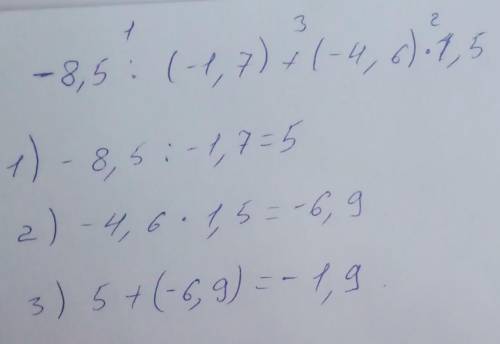 1 3 2
-8,5 : (-1,7) + (-4,6) · 1,5
1) - 8,5 : -1,7 = 5
2) -4,6 · 1,5 = -6,9
3) 5 + (-6,9) = - 1,9.